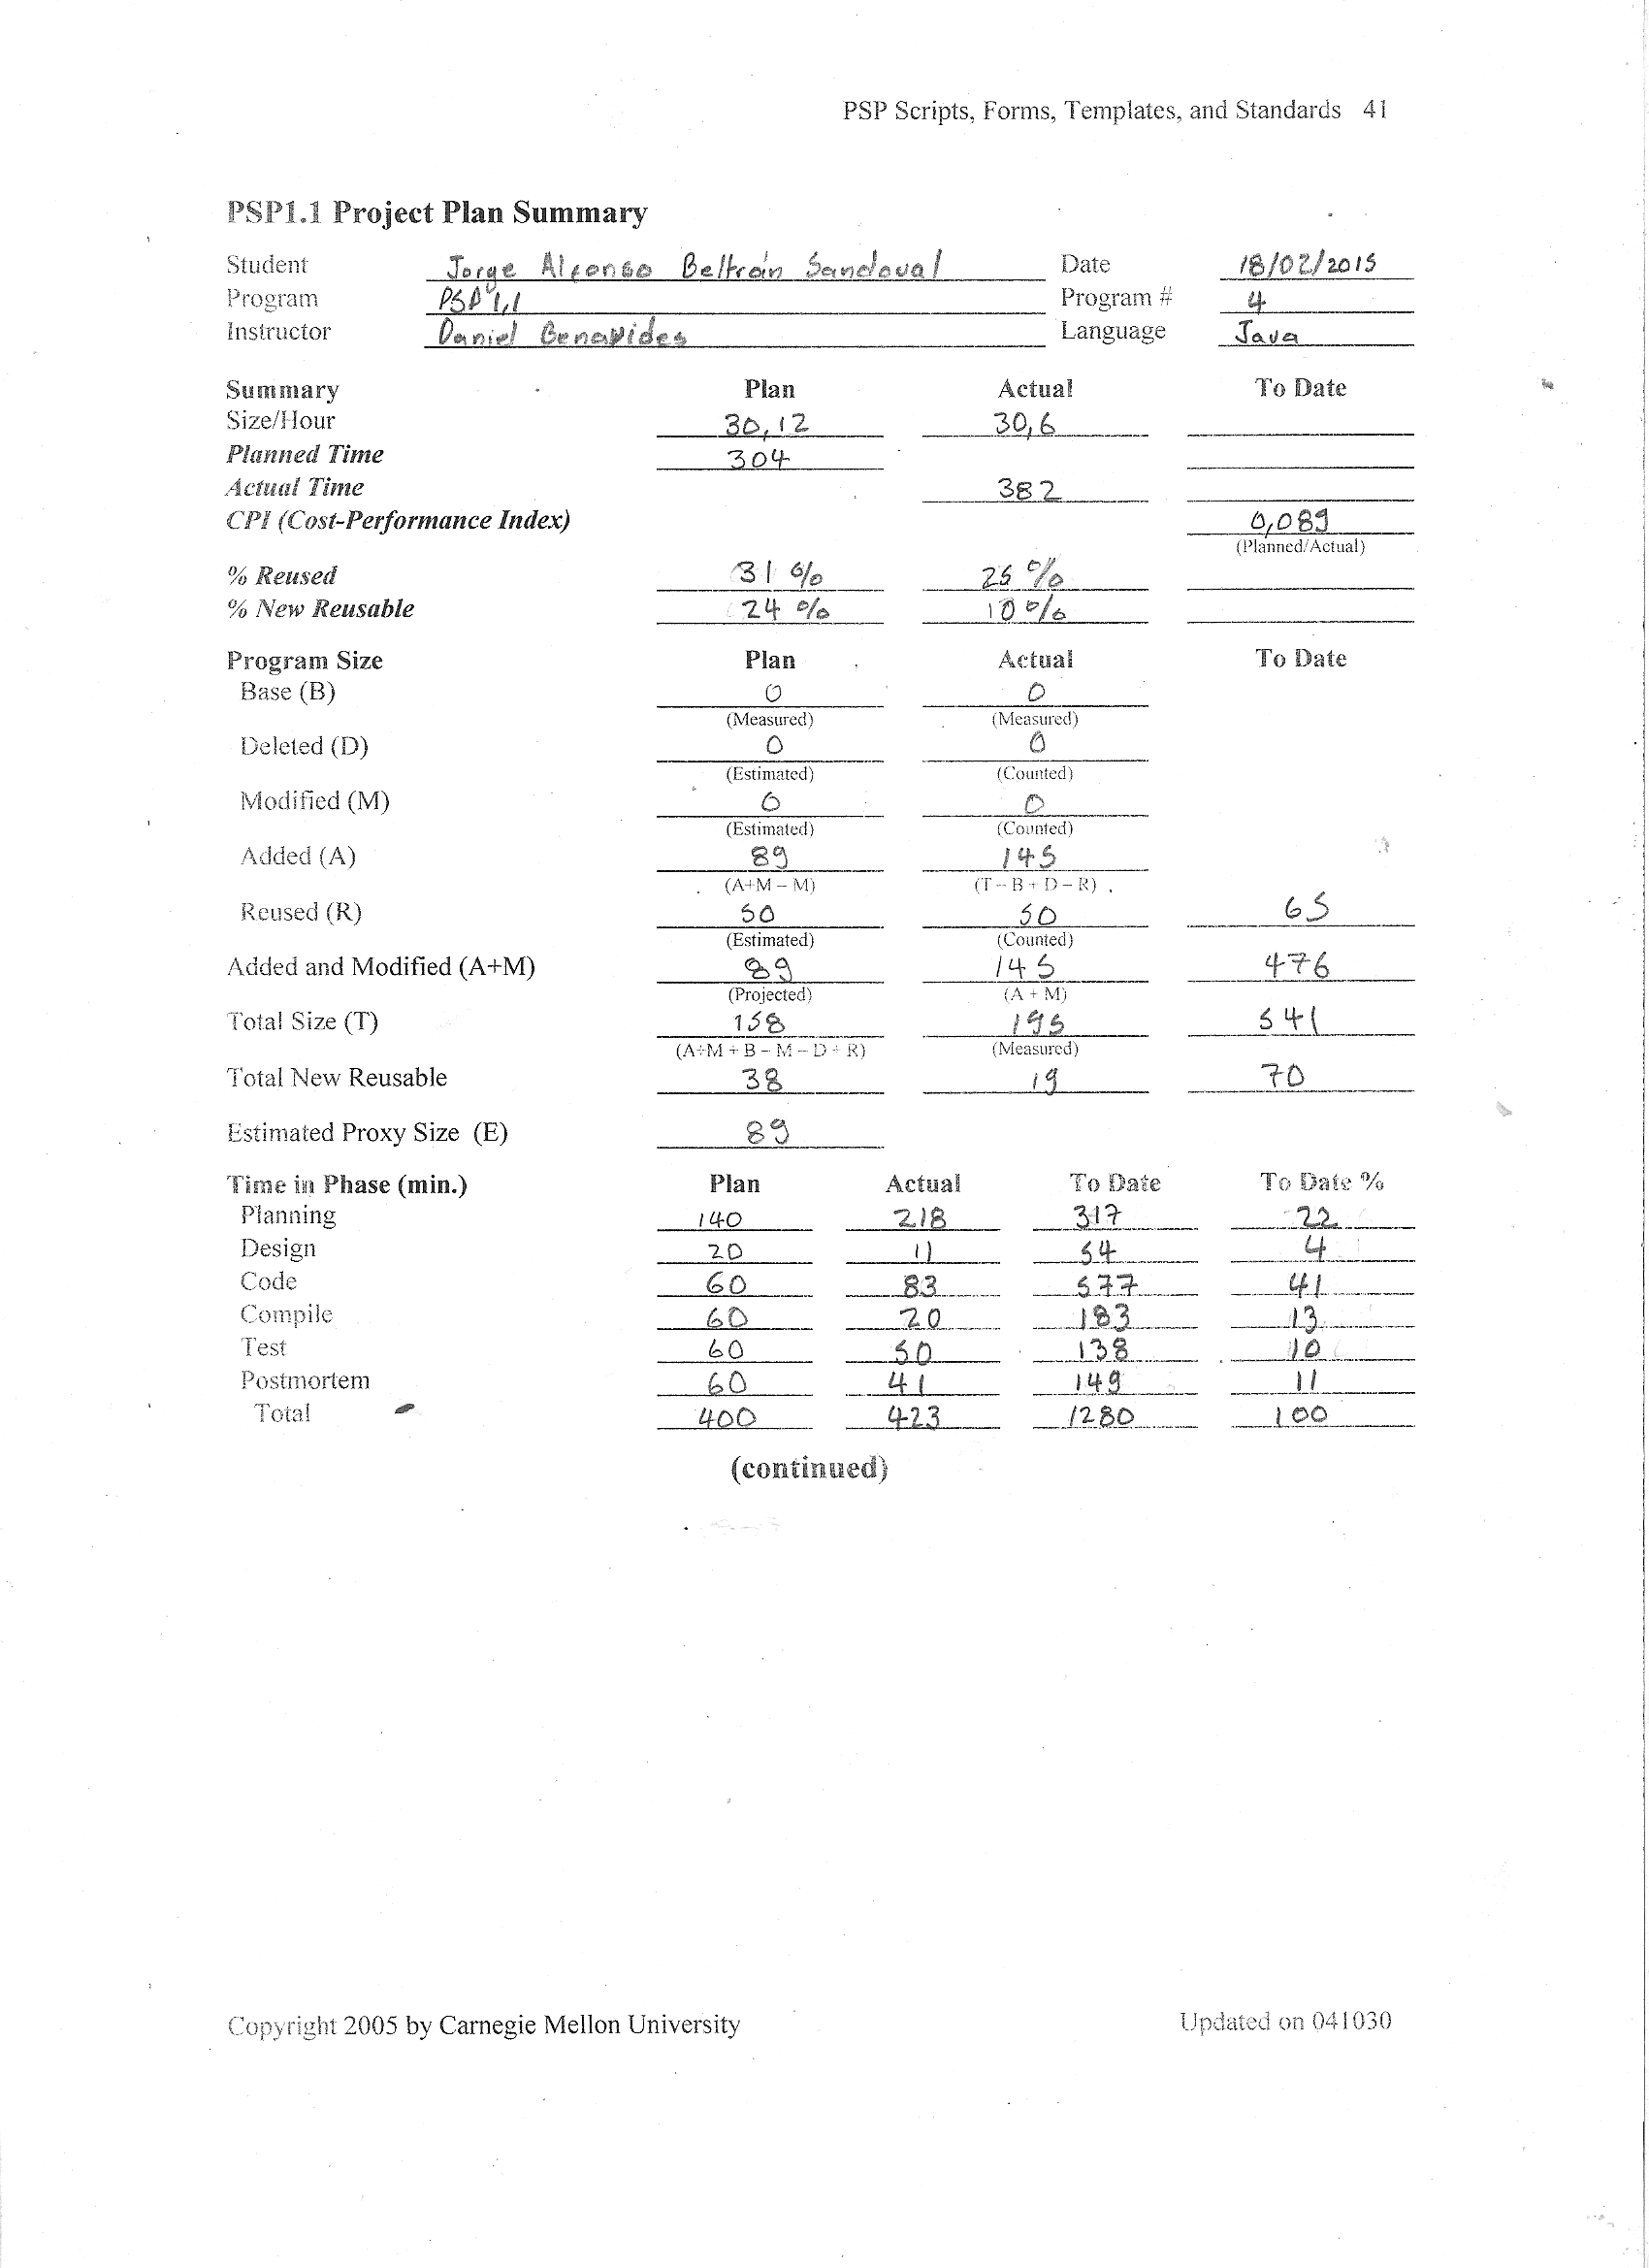 PSP Scripts, Forms, Templates, and Standards 41
PSP1.1 Project Plan Summary
Student Jorge Alfonso Beltrán Sandoval Date 18/02/2015
Program PSP 1,1 Program # 4
Instructor Daniel Benavides Language Java
Summary Plan Actual To Date
Size/Hour 30,12 30,6
Planned Time 304
Actual Time 382
CPI (Cost-Performance Index) 0,089
(Planned/Actual)
% Reused 31 % 25 %
% New Reusable 24 % 10 %
Program Size Plan Actual To Date
Base (B) 0 0
(Measured) (Measured)
Deleted (D) 0 0
(Estimated) (Counted)
Modified (M) 0 0
(Estimated) (Counted)
Added (A) 89 145
(A+M – M) (T – B + D – R)
Reused (R) 50 50 65
(Estimated) (Counted)
Added and Modified (A+M) 89 145 476
(Projected) (A + M)
Total Size (T) 158 195 541
(A+M + B – M – D + R) (Measured)
Total New Reusable 38 19 70
Estimated Proxy Size (E) 89
Time in Phase (min.) Plan Actual To Date To Date %
Planning 140 218 317 22
Design 20 11 54 4
Code 60 83 577 41
Compile 60 20 183 13
Test 60 50 138 10
Postmortem 60 41 149 11
Total 400 423 1280 100
(continued)
Copyright 2005 by Carnegie Mellon University Updated on 041030